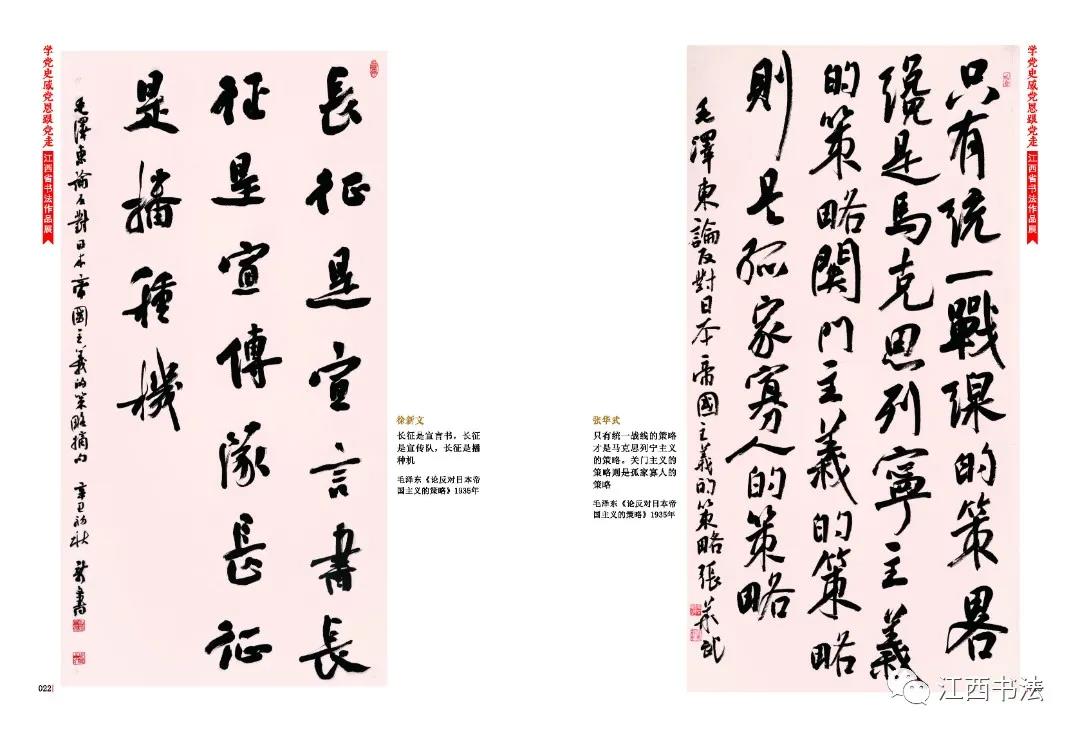 学党史感党恩跟党走
江西省书法作品展
長征是宣言書長
征是宣傳隊長征
是播種機
毛澤東論反對日本帝國主義的策略摘句 辛丑初秋 新書
徐新文
长征是宣言书，长征
是宣传队，长征是播
种机
毛泽东《论反对日本帝
国主义的策略》1935年
022
学党史感党恩跟党走
江西省书法作品展
只有统一戰線的策畧
纔是馬克思列寧主義
的策略関門主義的策略
則是孤家寡人的策略
毛澤東論反對日本帝國主義的策略張華武
张华武
只有统一战线的策略
才是马克思列宁主义
的策略。关门主义的
策略则是孤家寡人的
策略
毛泽东《论反对日本帝
国主义的策略》1935年
江西书法